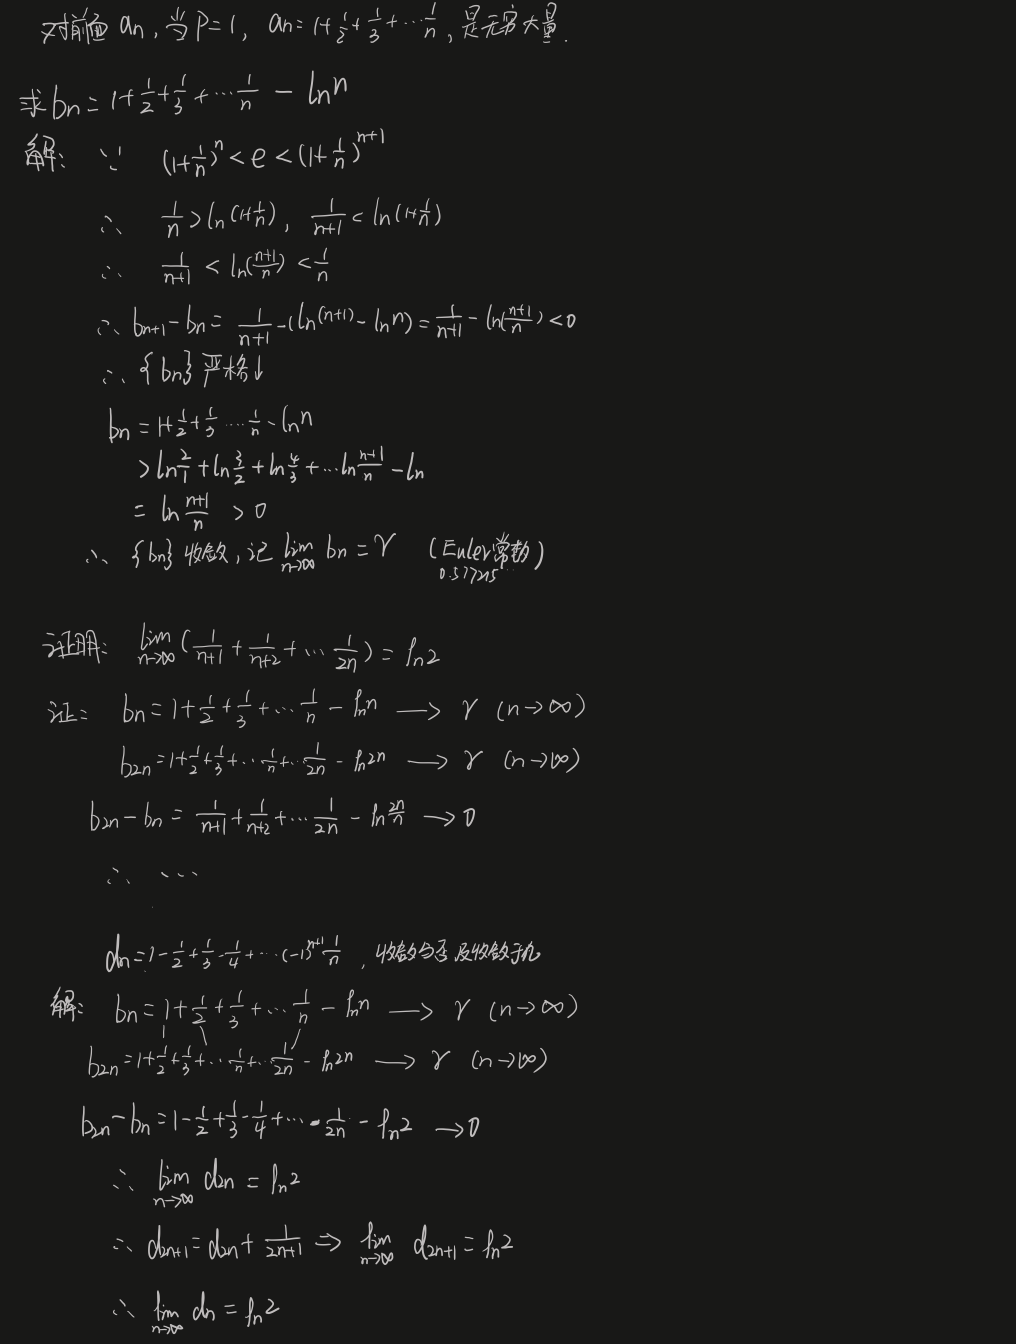 对前面 an, 当 P=1, an=1+1/2+1/3+…1/n, 是无穷大量.
求 bn=1+1/2+1/3+…1/n - ln n
解: ∵ (1+1/n)^n < e < (1+1/n)^(n+1)
∴ 1/n > ln(1+1/n), 1/(n+1) < ln(1+1/n)
∴ 1/(n+1) < ln((n+1)/n) < 1/n
∴ b_(n+1) - bn = 1/(n+1) - (ln(n+1) - ln n) = 1/(n+1) - ln((n+1)/n) < 0
∴ {bn} 严格↓
bn = 1+1/2+1/3 …1/n - ln n
> ln 2/1 + ln 3/2 + ln 4/3 + … ln (n+1)/n - ln
= ln (n+1)/n > 0
∴ {bn} 收敛, 记 lim n→∞ bn = γ (Euler常数)
0.577215…
证明: lim n→∞ (1/(n+1) + 1/(n+2) + … 1/2n) = ln2
证: bn = 1+1/2+1/3+…1/n - ln n → γ (n→∞)
b2n = 1+1/2+1/3+…1/n+…1/2n - ln 2n → γ (n→∞)
b2n - bn = 1/(n+1) + 1/(n+2) + … 1/2n - ln 2n/n → 0
∴ …
dn = 1-1/2+1/3-1/4+…(-1)^(n+1) 1/n, 收敛与否及收敛于几
解: bn = 1+1/2+1/3+…1/n - ln n → γ (n→∞)
b2n = 1+1/2+1/3+…1/n+…1/2n - ln 2n → γ (n→∞)
b2n - bn = 1-1/2+1/3-1/4+…-1/2n - ln 2 → 0
∴ lim n→∞ d2n = ln 2
∴ d2n+1 = d2n + 1/(2n+1) ⇒ lim n→∞ d2n+1 = ln 2
∴ lim n→∞ dn = ln 2